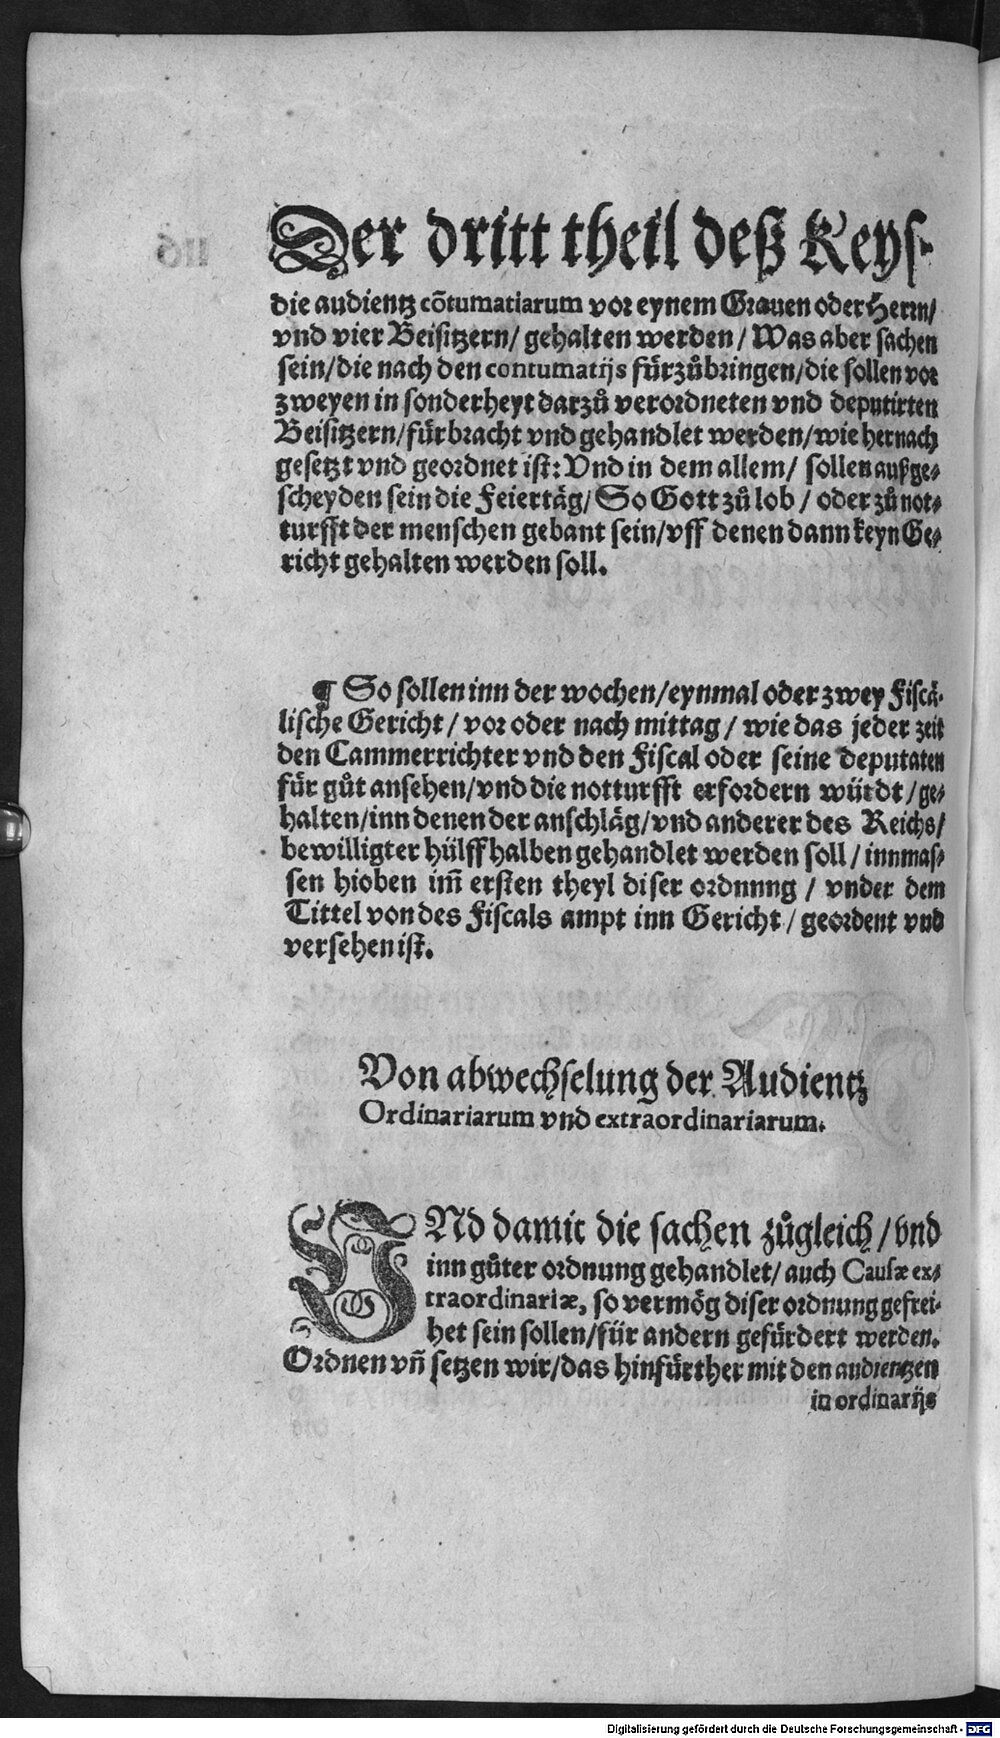 Der dritt theil deß Keys-
die audientz cõtumatiarum vor eynem Grauen oder Herrn/
vnd vier Beisitzern/ gehalten werden/ Was aber sachen
sein/die nach den contumatijs fürzůbringen/die sollen vor
zweyen in sonderheyt darzů verordneten vnd deputirten
Beisitzern/fürbracht vnd gehandlet werden/wie hernach
gesetzt vnd geordnet ist: Vnd in dem allem/ sollen außge-
scheyden sein die Feiertäg/ So Gott zů lob / oder zů not-
turfft der menschen gebant sein/vff denen dann keyn Ge-
richt gehalten werden soll.
¶ So sollen inn der wochen/eynmal oder zwey Fiscä-
lische Gericht/ vor oder nach mittag/ wie das jeder zeit
den Cammerrichter vnd den Fiscal oder seine deputaten
für gůt ansehen/vnd die notturfft erfordern würdt/ge-
halten/inn denen der anschläg/vnd anderer des Reichs/
bewilligter hülff halben gehandlet werden soll/ innmas-
sen hioben im̃ ersten theyl diser ordnung/ vnder dem
Tittel von des Fiscals ampt inn Gericht/ geordent vnd
versehen ist.
Von abwechselung der Audientz
Ordinariarum vnd extraordinariarum.
VNd damit die sachen zůgleich/vnd
inn gůter ordnung gehandlet/ auch Causæ ex-
traordinariæ, so vermög diser ordnung gefrei-
het sein sollen/für andern gefürdert werden.
Ordnen vñ setzen wir/das hinfürther mit den audientzen
in ordinarijs
116
Digitalisierung gefördert durch die Deutsche Forschungsgemeinschaft - DFG